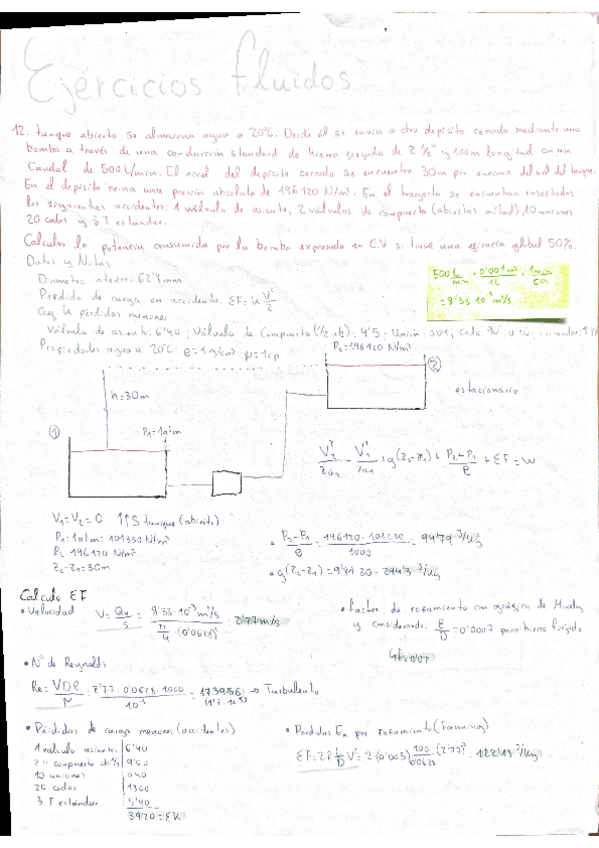 Ejercicios fluidos
12. tanque abierto se almacena agua a 20ºC. Desde él se envía a otro depósito cerrado mediante una
bomba a través de una conducción standard de hierro forjado de 2 ½" y 100m longitud con un
Caudal de 500 L/min. El nivel del depósito cerrado se encuentra 30m por encima del nivel del tanque.
En el depósito reina una presión absoluta de 196120 N/m². En el trayecto se encuentran insertados
los siguientes accidentes: 1 válvula de asiento, 2 válvulas de compuerta (abiertas mitad) 10 uniones
20 codos y 3 T estándar.
Calcular la potencia consumida por la bomba expresada en C.V si tiene una eficacia global 50%.
Datos y Notas
Diametro interno: 62'8mm
Perdida de carga en accidente: ΣF = K V²/2
Coef. K pérdidas menores:
Válvula de asiento: 6'40; Válvula de Compuerta (½ ab): 4'5; Unión: 0'04, codo 90º:
Propiedades agua a 20ºC: μ=1cp
500 L/min · 0'001m³/1L · 1min/60s
= 8'33·10⁻³ m³/s
P₂=196120 N/m²
②
h=30m
estacionario
①
P₁=1atm
V₂²/2α₂ - V₁²/2α₁ + g(z₂-z₁) + P₂-P₁/ρ + ΣF = W
V₁=V₂=0 ↑↑S tanque (abierto)
P₁=1atm=101330 N/m²
P₂=196120 N/m²
z₂-z₁=30m
• P₂-P₁/ρ = 196120-101330/1000 = 94'79 J/kg
• g(z₂-z₁)=9'81·30=294'3 J/kg
Calculo ΣF
• Velocidad V = Qv/S = 8'33·10⁻³m³/s / π/4·(0'0628)² = 2'77m/s
• Factor de rozamiento con gráfico de Moody
y considerando: ε/D=0'0007 para hierro forjado
4f=0'02
• Nº de Reynolds
Re = VDρ/μ = 2'77·0'0628·1000/10⁻³ = 173956 → Turbulento
(1'7·10⁵)
• Pérdidas de carga menores (accidentes)
1 valvula asiento 6'40
2 " compuerta ab ½ 9'00
10 uniones 0'40
20 codos
3 T estándar 5'40
39'20 = ΣK
• Perdidas En por rozamiento (Fanning)
ΣF = 2f L/D V² = 2·(0'005) 100/0'0628 ·(2'77)² = 122'19 J/kg